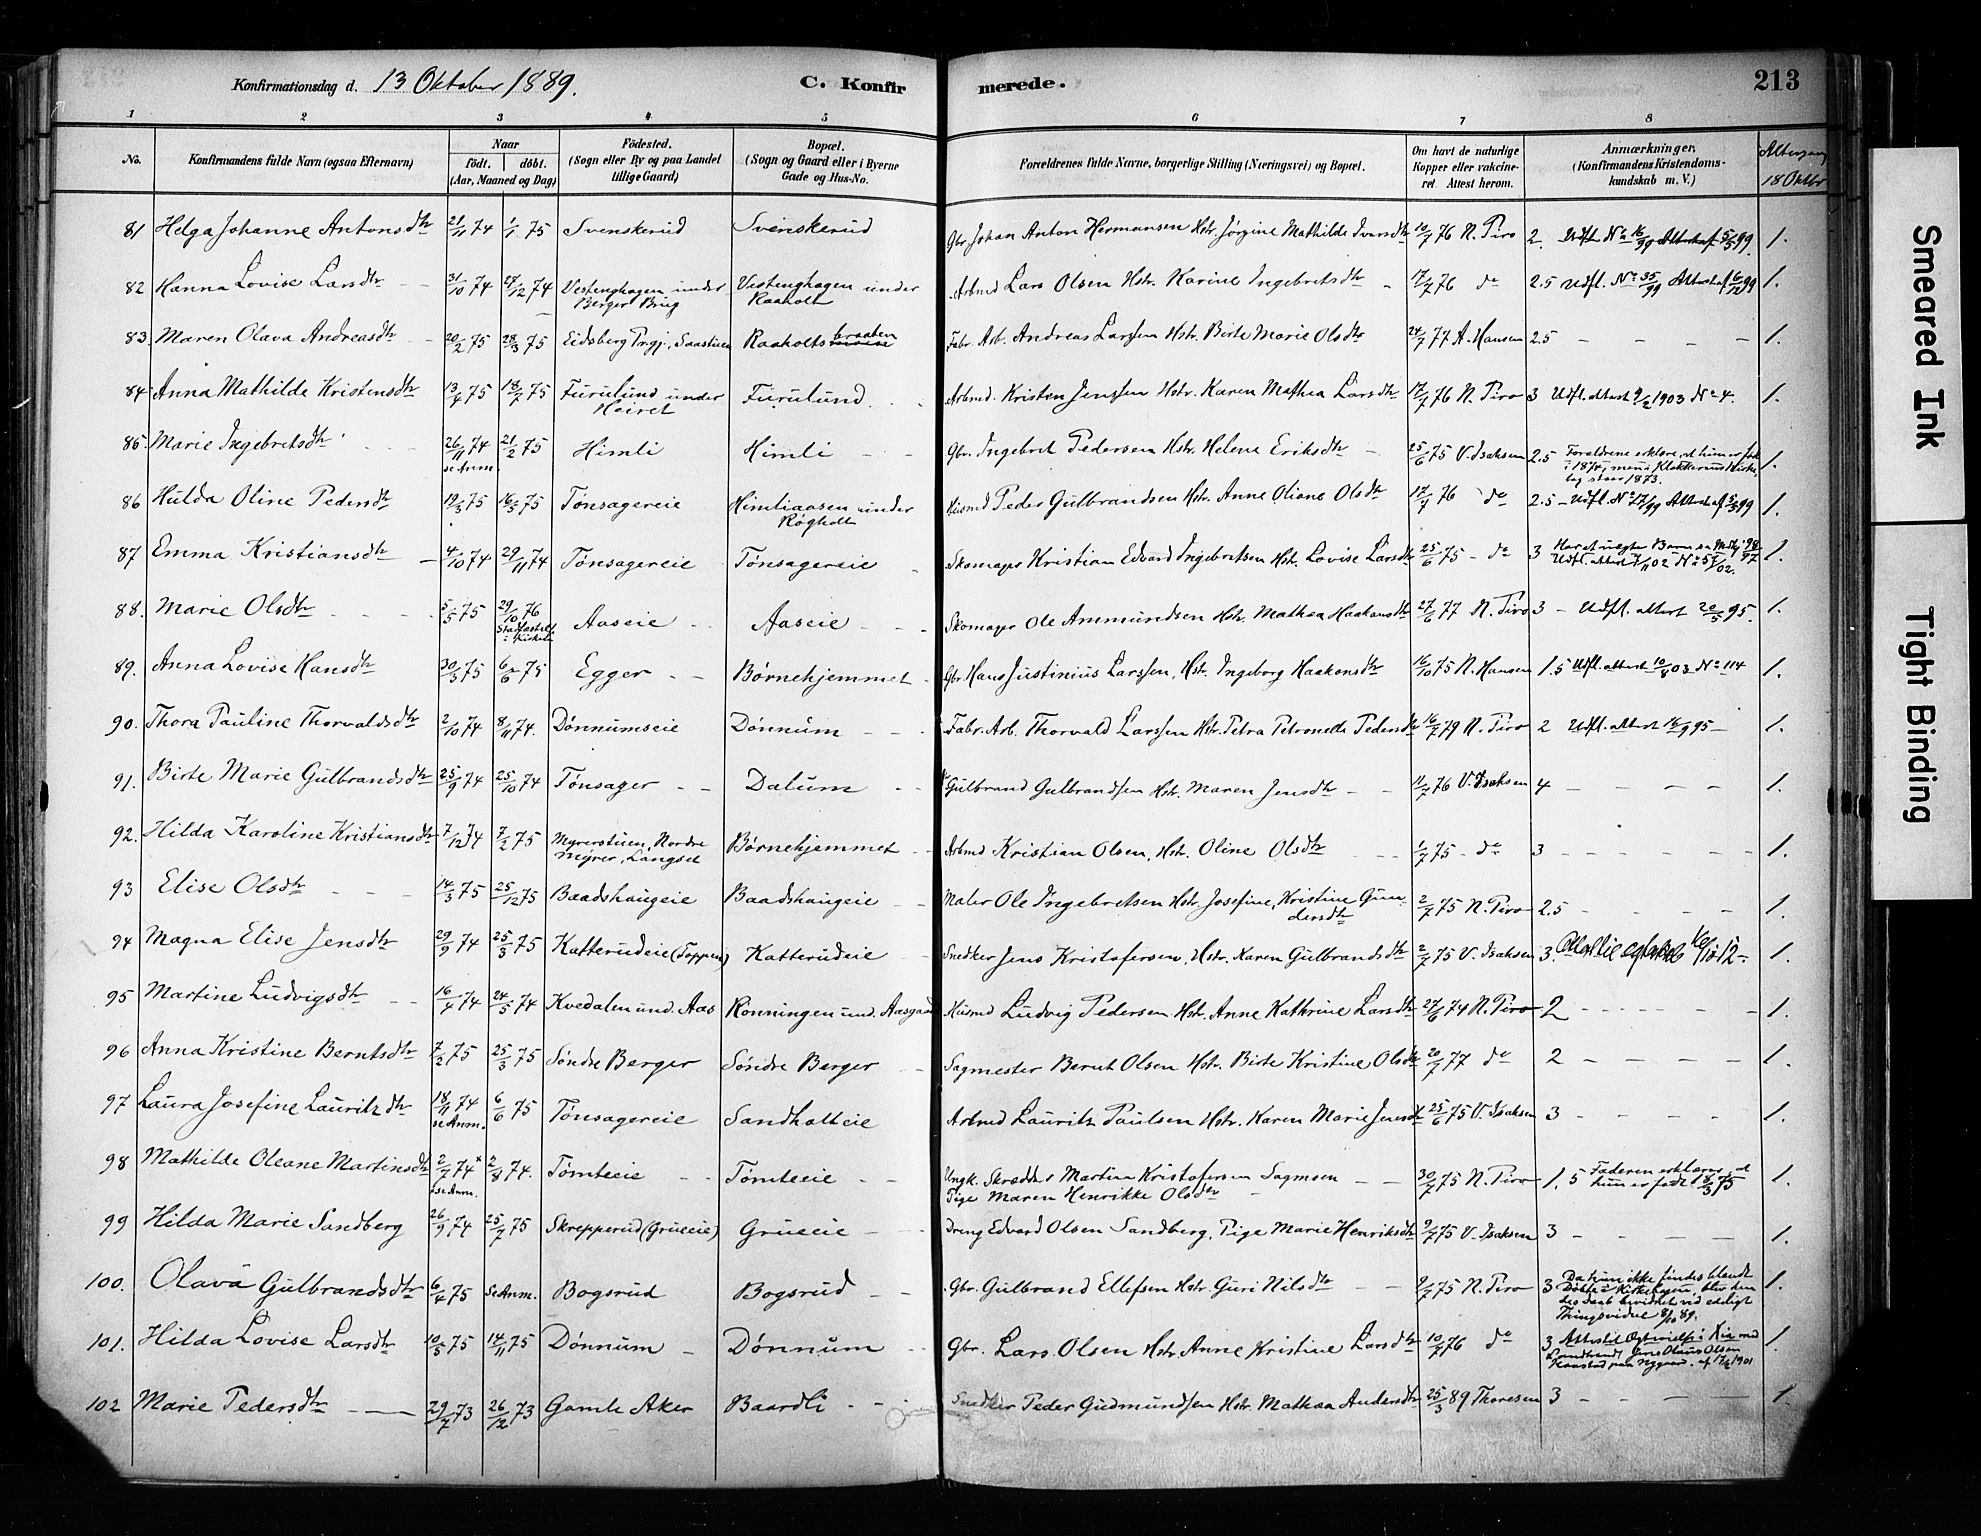 Konfirmationsdag d. 13 Oktober 1889.
C. Konfir merede.
213
1 2 3 4 5 6 7 8
No. Konfirmandens fulde Navn (ogsaa Efternavn) Naar födt. döbt. (Aar, Maaned og Dag) Födested. (Sogn eller By og paa Landet tillige Gaard) Bopæl. (Sogn og Gaard eller i Byerne Gade og Hus-No. Forældrenes fulde Navne, borgerlige Stilling (Næringsvei) og Bopæl. Om havt de naturlige Kopper eller vakcineret Attest herom. Anmærkninger. (Konfirmandens Kristendomskundskab m. V.) Altergang 18 Oktbr
81 Helga Johanne Antonsdtr 21/11 74 1/1 75 Svenskerud Svenskerud Gbr. Johan Anton Hermansen Hstr. Jørgine Mathilde Ivarsdtr 10/7 76 N. Tiro 2. Udfl. No 16/99 Attest af 5/5 99 1.
82 Hanna Lovise Larsdtr 31/10 74 27/12 74 Vestenghagen under Berger Brug Vestenghagen under Raaholt Arbmd Lars Olsen Hstr. Karine Ingebretsdtr 17/7 76 do 2.5 Udfl. No 35/99 Attest af 6/12 99 1.
83. Maren Olava Andreasdtr 20/2 75 28/3 75 Eidsberg Prgj., Saastuen Raaholtsbraaten Fabr. Arb. Andreas Larssen Hstr. Birte Marie Olsdtr 24/7 77 A. Hansen 2.5 1.
84 Anna Mathilde Kristensdtr 13/4 75 18/7 75 Furulund under Hoiret Furulund Arbmd. Kristen Jenssen Hstr. Karen Mathea Larsdtr 17/7 76 N. Tiro 3 Udfl. attest 9/2 1903 No 4. 1.
85. Marie Ingebretsdtr 26/11 74 se Anm. 21/2 75 Himli Himli Gbr. Ingebret Pedersen Hstr. Helene Eriksdtr 25/6 75 V. Isaksen 2.5 Forældrene erklære, at hun er født i 1874, men i Klokkerens Kirkebog staar 1873. 1.
86 Hulda Oline Pedersdtr 19/3 75 16/5 75 Tønsagereie Himliaasen under Røgholt Husmd Peder Gulbrandsen Hstr. Anne Oliane Olsdtr 17/7 76 do 2.5 Udfl. No 17/99 Attest af 5/5 99 1.
87 Emma Kristiansdtr 4/10 74 29/11 74 Tønsagereie Tønsagereie Skomager Kristian Edvard Ingebretsen Hstr. Lovise Larsdtr 25/6 75 do 3 Har et uegte Barn 1.
88. Marie Olsdtr 5/5 75 29/10 76 Stadfæstet i Kirken Aaseie Aaseie Skomager Ole Ammundsen Hstr. Mathea Haakonsdtr 27/6 77 N. Tiro 3 Udfl. attest 20/5 95. 1.
89. Anna Lovise Hansdtr 30/3 75 6/6 75 Egger Børnehjemmet Gbr. Hans Justinius Larssen, Hstr. Ingeborg Haakonsdtr 16/10 75 N. Hansen 1.5 Udfl. attest 10/8 03 No 114 1.
90. Thora Pauline Thorvaldsdtr 2/10 74 8/11 74. Dønnumseie Dønnum Fabr. Arb. Thorvald Larssen Hstr. Petra Petronelle Pedersdtr 16/7 79 N. Tiro 2 Udfl. attest 16/9 95 1.
91. Birte Marie Gulbrandsdtr 25/9 74 25/10 74 Tønsager Dalum Gulbrand Gulbrandsen Hstr. Maren Jensdtr 11/7 76 V. Isaksen 4 1.
92. Hilda Karoline Kristiansdtr 7/12 74 7/2 75 Myrerstuen, Nordre Myrer, Langset Børnehjemmet Arbmd Kristian Olsen, Hstr. Oline Olsdtr 1/7 75 do 3 1.
93 Elise Olsdtr 14/3 75 25/12 75 Baadshaugeie Baadshaugeie Maler Ole Ingebretsen Hstr. Josefine Kristine Gundersdtr 2/7 75 N. Tiro 2.5 1.
94 Magna Elise Jensdtr 29/9 74 25/3 75 Katterudeie (Toppen) Katterudeie Snedker Jens Kristofersen, Hstr. Karen Gulbrandsdtr 2/7 75 V. Isaksen 3. 1.
95 Martine Ludvigsdtr 16/4 74 24/5 74 Kvedalen und. Aas Rønningen und. Aasgaard Husmd Ludvig Pedersen Hstr. Anne Kathrine Larsdtr 27/6 74 N. Tiro 2 1.
96 Anna Kristine Berntsdtr 7/2 75 25/3 75 Søndre Berger Søndre Berger Sagmester Bernt Olsen Hstr. Birte Kristine Olsdtr 20/7 77 do 2 1.
97 Laura Josefine Lauritzdtr 18/11 74 se Anm. 6/6 75 Tønsagereie Sandholteie Arbmd Lauritz Paulsen Hstr. Karen Marie Jensdtr 25/6 75 V. Isaksen 3 1.
98 Mathilde Oleane Martinsdtr 2/7 74 x se Anm. 2/8 74. Tømteeie Tømteeie Ungk. Skrædder Martin Kristofersen Sagmoen Pige Maren Henrikke Olsdtr 30/7 75 N. Tiro 1.5 Faderen erklærer, at hun er født 18/3 75 1.
99 Hilda Marie Sandberg 26/9 74 25/7 75 Skrepperud (Grueeie) Grueeie Dreng Edvard Olsen Sandberg, Pige Marie Henriksdtr 9/7 75 V. Isaksen 3 1.
100. Olava Gulbrandsdtr 6/4 75 Se Anm. Bogsrud Bogsrud Gbr. Gulbrand Ellefsen Hstr. Guri Nilsdtr 9/7 75 N. Tiro 3 Da hun ikke findes blandt Døbte i Kirkebogen, blev hendes Daab bevidnet ved edeligt Thingsvidne 8/10 89. 1.
101. Hilda Lovise Larsdtr 10/5 75 14/11 75 Dønnum Dønnum Gbr. Lars Olsen Hstr. Anne Kristine Larsdtr 10/7 76 do 3 Attest til Ægtevielse 1.
102 Marie Pedersdtr 29/7 73 26/12 73 Gamle Aker Baardli Snedker Peder Gudmundsen Hstr. Mathea Andersdtr 25/3 89 Thoresen 3 1.
Smeared Ink
Tight Binding